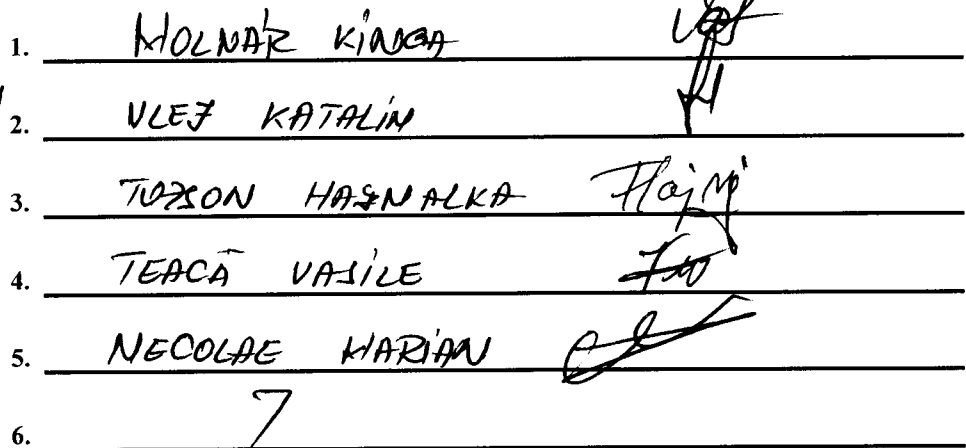 1. MOLNÁR KINGA
2. VLEJ KATALIN
3. TUZSON HAJNALKA
4. TEACĂ VASILE
5. NECOLAE MARIAN
6.